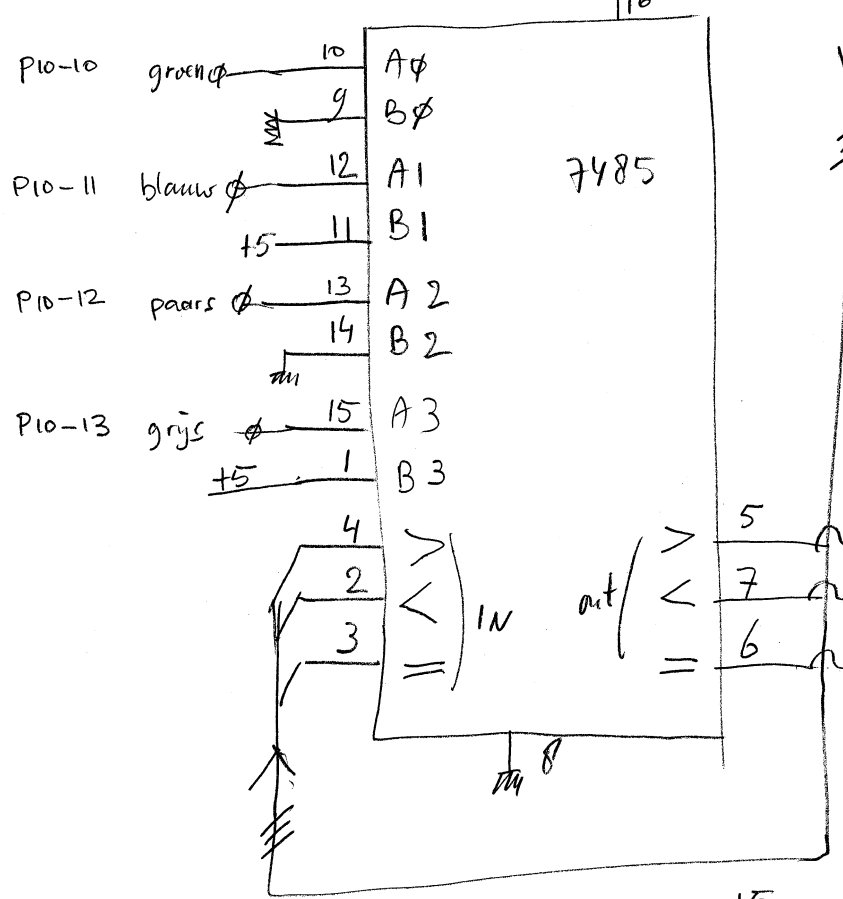 16
P10-10 groen 10 A0
9 B0
7485
P10-11 blauw 12 A1
+5 11 B1
P10-12 paars 13 A2
14 B2
P10-13 grijs 15 A3
+5 1 B3
4 > > 5
2 < IN out < 7
3 = = 6
8